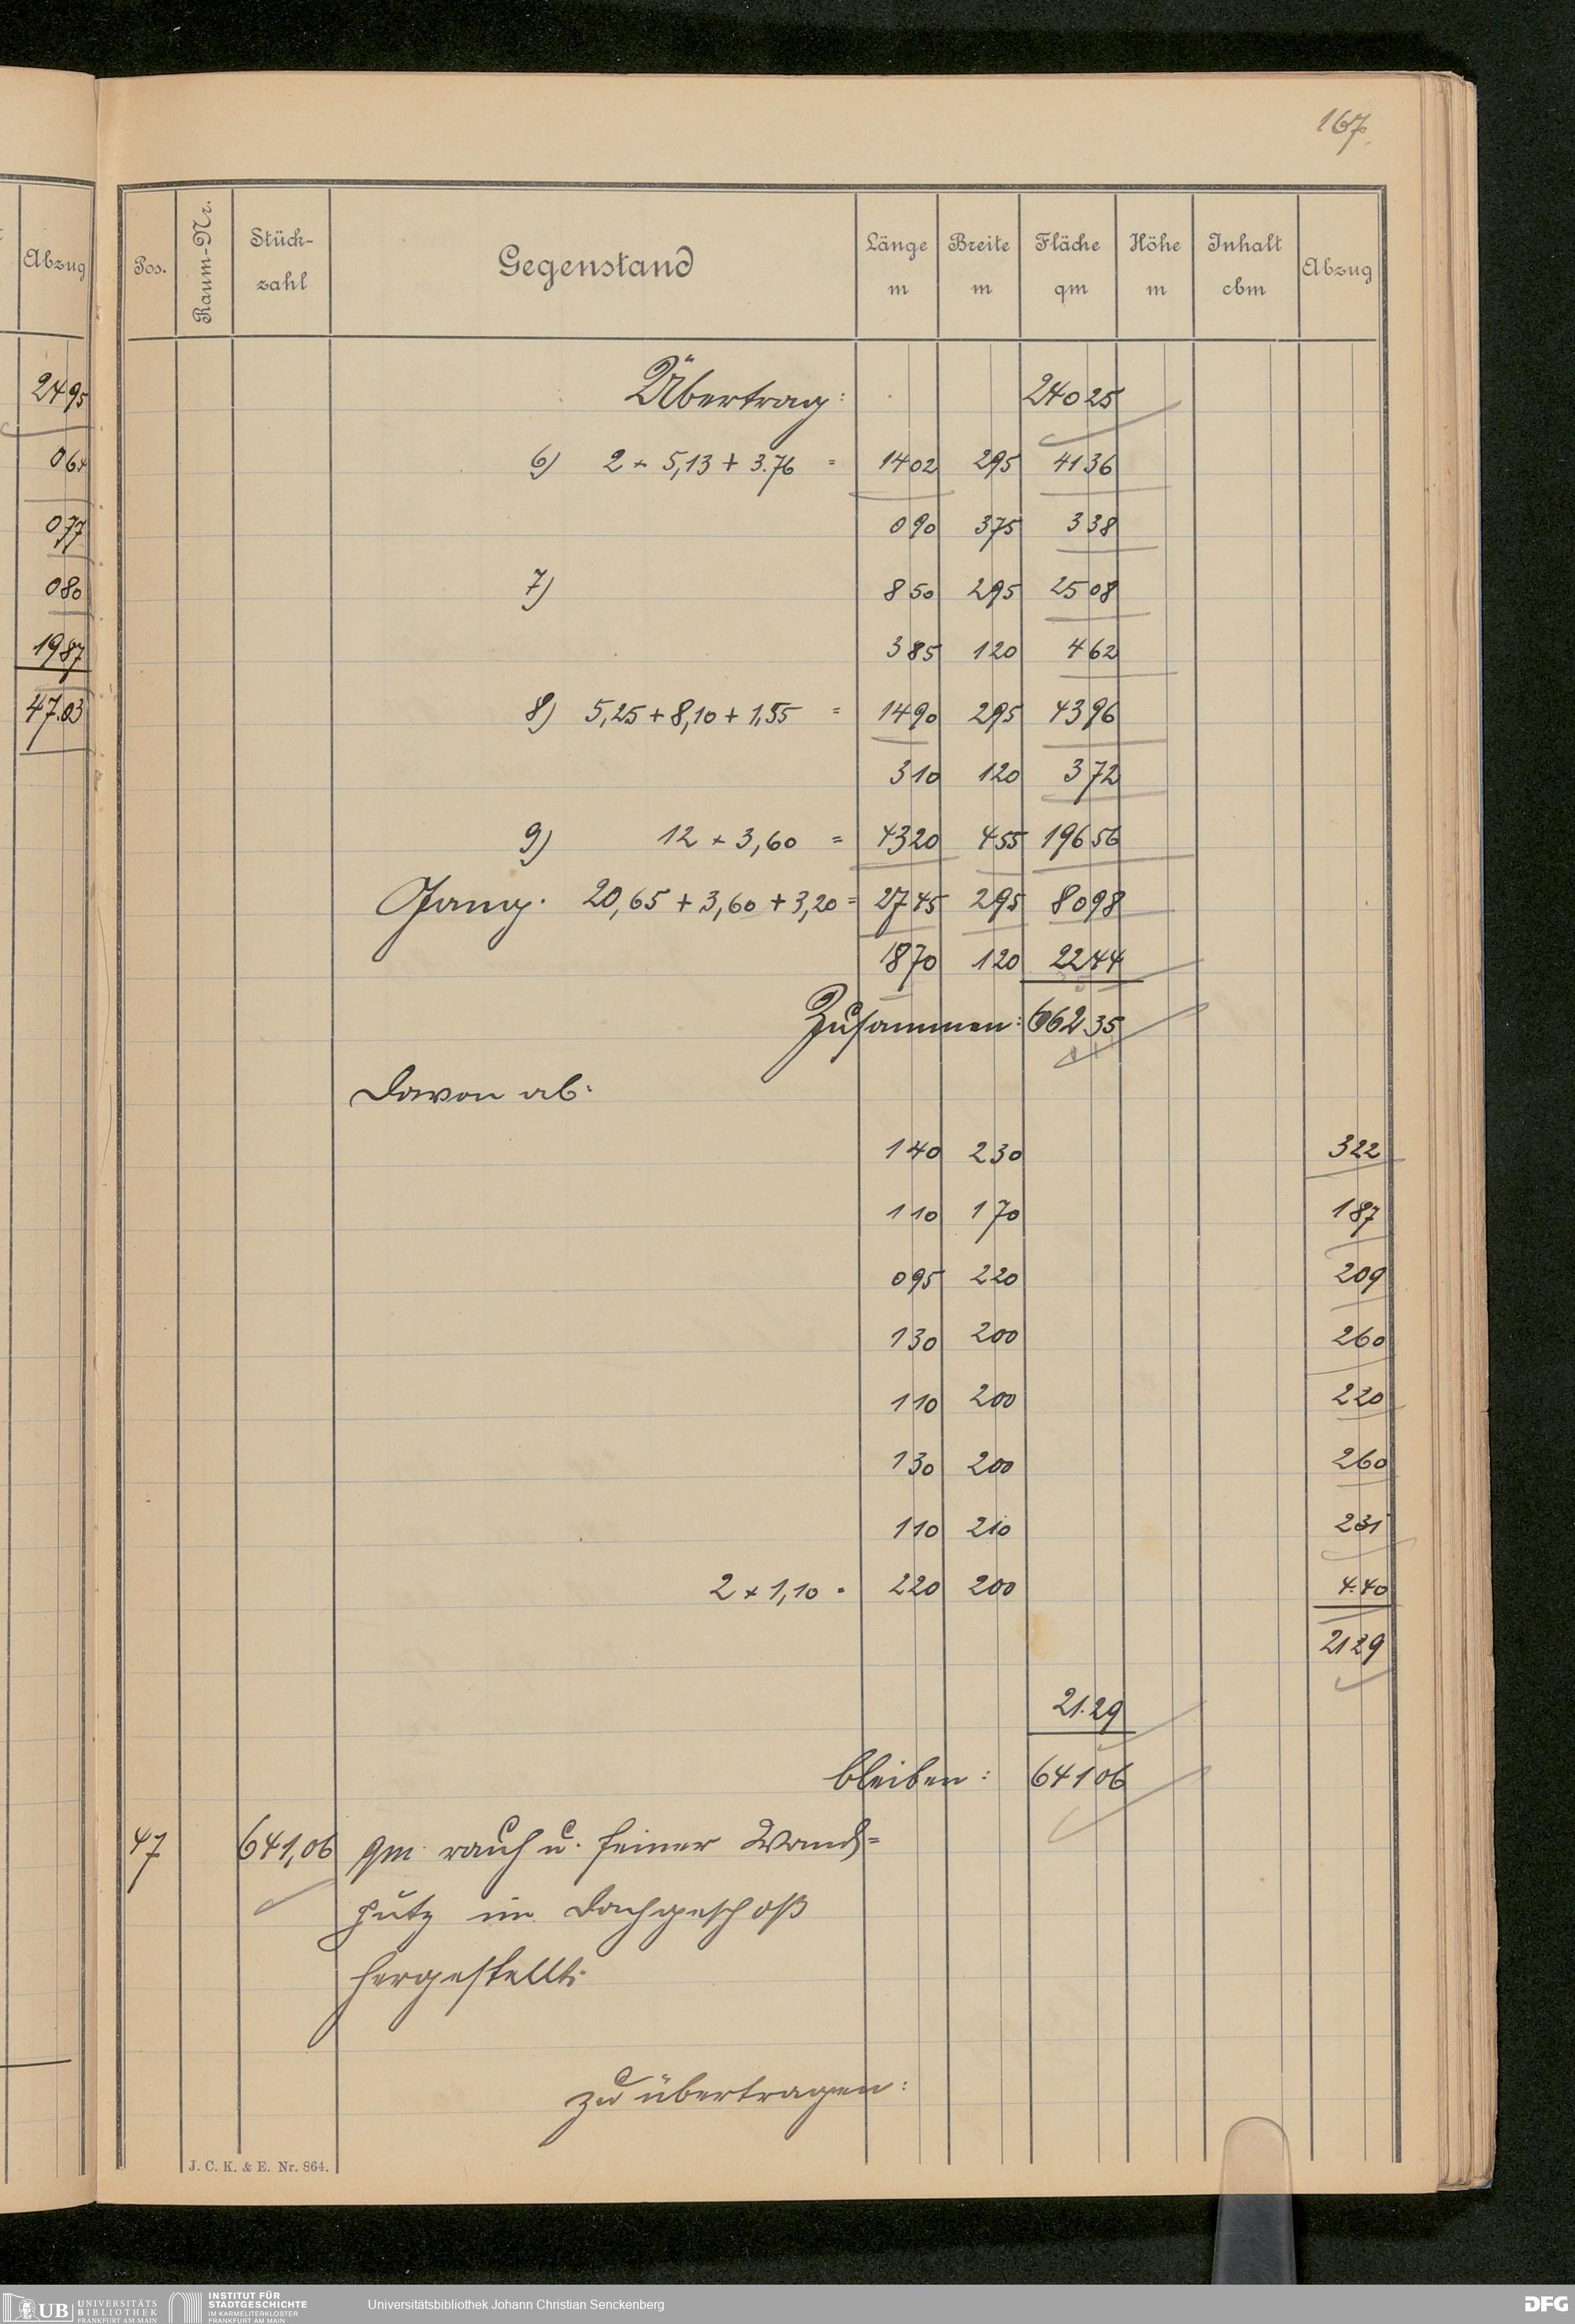 167.
Abzug
2495
064
077
080
1987
47.03
Pos. Raum-Nr. Stück-zahl Gegenstand Länge m Breite m Fläche qm Höhe m Inhalt cbm Abzug
Übertrag: 24025
6) 2 × 5,13 + 3.76 = 1402 295 4136
090 375 338
7) 850 295 2508
385 120 462
8) 5,25 + 8,10 + 1,55 = 1490 295 4396
310 120 372
9) 12 × 3,60 = 4320 455 19656
Gang. 20,65 + 3,60 + 3,20 = 2745 295 8098
1870 120 2244
Zusammen: 66235
Davon ab:
140 230 322
110 170 187
095 220 209
130 200 260
110 200 220
130 200 260
110 210 231
2 × 1,10 = 220 200 4.40
2129
21.29
bleiben: 64106
47 641,06 qm rauh u. feiner Wand=
putz im Dachgeschoß
hergestellt.
zu übertragen:
J. C. K. & E. Nr. 864.
UB UNIVERSITÄTS BIBLIOTHEK FRANKFURT AM MAIN
INSTITUT FÜR STADTGESCHICHTE IM KARMELITERKLOSTER FRANKFURT AM MAIN
Universitätsbibliothek Johann Christian Senckenberg
DFG